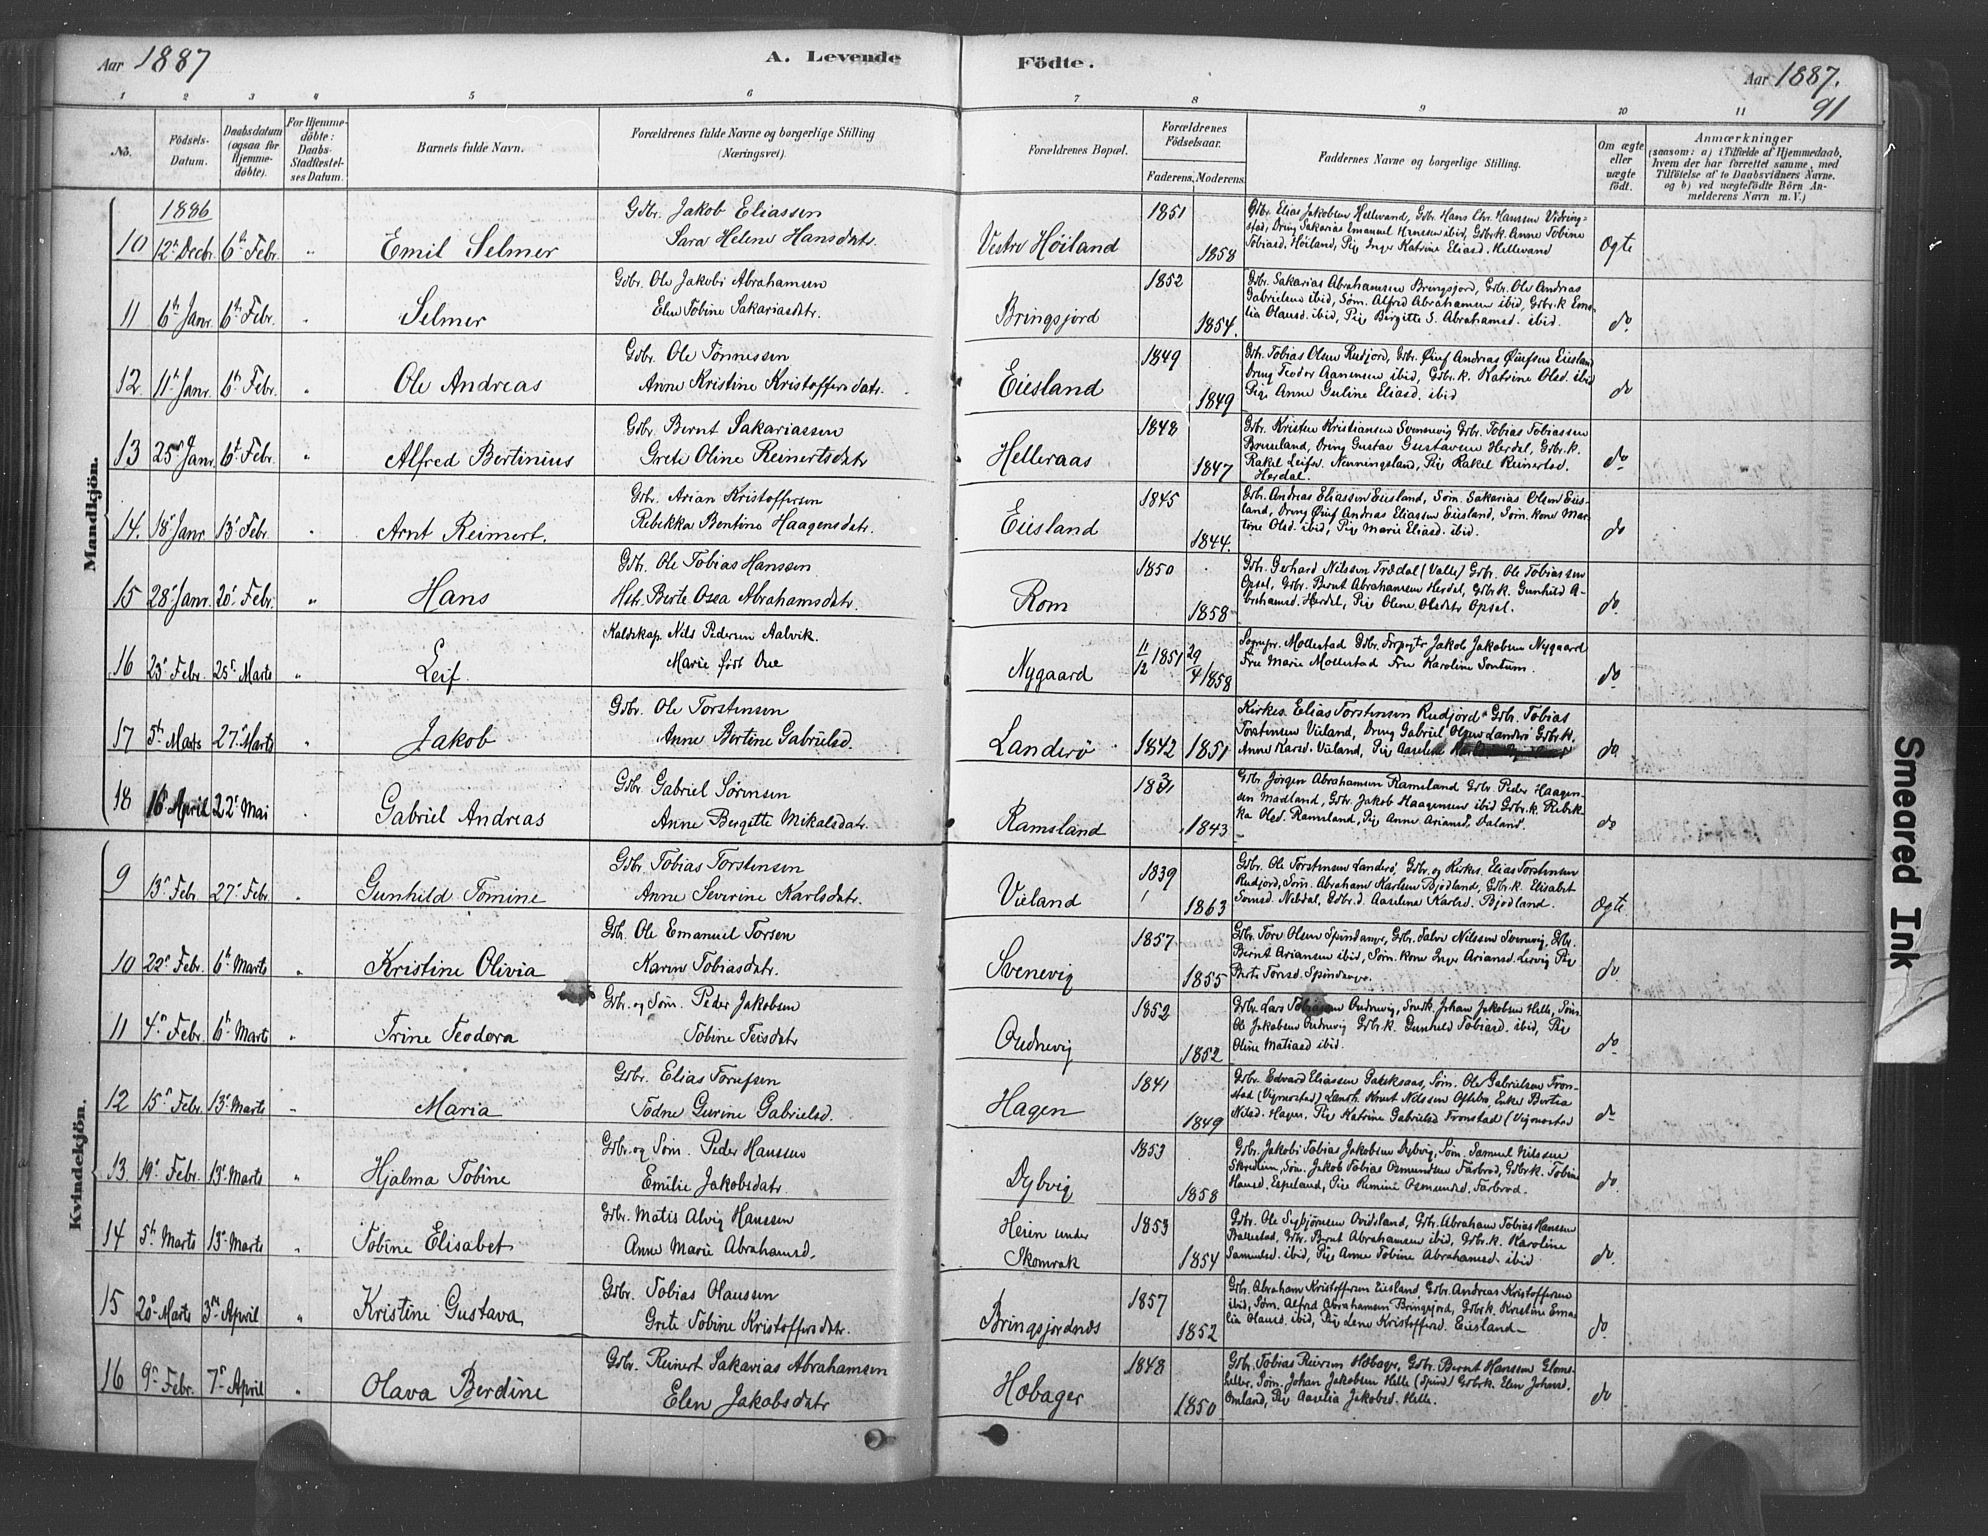 Aar 1887
A. Levende Födte.
Aar 1887.
91
1 2 3 4 5 6 7 8 9 10 11
No.
Födsels-
Datum.
Daabsdatum
(ogsaa for
Hjemme-
døbte).
For Hjemme-
döbte:
Daabs-
Stadfæstel-
ses Datum.
Barnets fulde Navn.
Forældrenes fulde Navne og borgerlige Stilling
(Næringsvei).
Forældrenes Bopæl.
Forældrenes
Födselsaar.
Faderens, Moderens.
Faddernes Navne og borgerlige Stilling.
Om ægte
eller
uægte
födt.
Anmærkninger
(saasom: a) i Tilfælde af Hjemmedaab,
hvem der har forrettet samme, med
Tilföielse af to Daabsvidners Navne.
og b) ved uægtefödte Börn An-
melderens Navn m. V.)
Mandkjön.
1886
10 12te Decbr. 6te Febr. " Emil Selmer
Gdbr. Jakob Eliassen
Sara Helene Hansdatr.
Vestre Høiland 1851 1858
Gdbr. Elias Jakobsen Hellevand, Gdbr. Hans Chr. Hanssen Vidring-
stad, Dreng Sakarias Emanuel Hanssen ibid, Gdbrk. Anne Tobine
Tobiasd. Høiland, Pige Inger Katrine Eliasd. Hellevand
Ægte
11 6te Janr. 6te Febr. " Selmer
Gdbr. Ole Jakobi Abrahamsen
Elen Tobine Sakariasdatr.
Bringsjord 1852 1854.
Gdbr. Sakarias Abrahamsen Bringsjord, Gdbr. Ole Andreas
Gabrielsen ibid, Søm. Alfred Abrahamsen ibid, Gdbr.k Ema-
lia Olausd. ibid, Pige Birgitte S. Abrahamsd. ibid.
do
12 11te Janr. 6te Febr. " Ole Andreas
Gdbr. Ole Tønnessen
Anne Kristine Kristoffersdatr.
Eiesland 1849 1849
Gdbr. Tobias Olsen Rudjord, Gdbr. Andreas Eiesland
Dreng Teodor Aanensen ibid, Gdbr.k. Katrine Olsd. ibid
Pige Anne Guline Eliasd. ibid
do
13 25de Janr. 6te Febr. " Alfred Bertinius
Gdbr. Bernt Sakariassen
Grete Oline Reinertsdatr
Helleraas 1848 1847
Gdbr. Kristen Kristiansen Svennevig Gdbr. Tobias Tobiassen
Dreng Gustav Gustavsen Herdal, Gdbr.k.
Rakel Leifsd. Nenningsland, Pige Rakel Reinertsd.
Herdal.
do
14. 18de Janr. 13de Febr. " Arnt Reimert.
Gdbr. Arian Kristoffersen
Rebekka Bentine Haagensdatr.
Eiesland 1845 1844.
Gdbr. Andreas Eliassen Eiesland, Søm. Sakarias Olsen Eies-
land, Dreng Andreas Eliassen Eiesland, Søm. kone Mar-
tine Olsd. ibid, Pige Marie Eliasd. ibid.
do
15 28de Janr. 20de Febr. " Hans
Gdbr. Ole Tobias Hanssen
Berte Osea Abrahamsdatr.
Rom 1850 1858
Gdbr. Gerhard Nilssen Trædal (Valle) Gdbr. Ole Tobiassen
Opsal, Gdbr. Bernt Abrahamsen Herdel, Gdbr.k Gunhild A-
brahamsd. Herdel, Pige Olene Olsdatr Opsel.
do.
16 23de Febr. 25de Marts " Leif
Nils Pedersen Aalvik.
Marie født Due
Nygaard 11/12 1851 29/4 1858
Sognepr. Mollestad Gdbr. Forpagtr. Jakob Jakobsen Nygaard
Frue Marie Mollestad Frue Karoline Sontum.
do.
17 5te Marts 27de Marts " Jakob
Gdbr. Ole Torstensen
Anne Bertine Gabrielsd.
Landerø 1842 1851
Kirkes. Elias Torstensen Rudjord Gdbr. Tobias
Torstensen Vieland, Dreng Gabriel Olsen Landerø Gdbr.k.
Anne Karsd. Vieland, Pige Aaselene
do
18 16de April 22de Mai Gabriel Andreas
Gdbr. Gabriel Sørensen
Anne Bergitte Mikalsdatr.
Ramsland 1831 1843
Gdbr. Jørgen Abrahamsen Ramsland Gdbr. Peder Haagen-
sen Madland, Gdbr. Jakob Haagensen ibid Gdbr.k. Rebek-
ka Olsd. Ramsland, Pige Anne Ariansd. Daland.
do
Kvindekjön.
9 13de Febr. 27de Febr " Gunhild Tomine
Gdbr. Tobias Torstensen
Anne Severine Karlsdatr.
Vieland 1839 1863
Gdbr. Ole Torstensen Landerø, Gdbr. og Kirkes. Elias Torstensen
Rudjord, Søm. Abraham Karlsen Bjodland, Gdbr.k. Elisabet
Nebdal, Gdbr.d. Aaselene Karlsd. Bjodland.
Ægte
10 22de Febr. 6te Marts " Kristine Olivia
Gdb. Ole Emanuel Torsen
Karen Tobiasdatr.
Svenevig 1857 1855
Gdbr. Tore Olsen Spindsange, Gdbr. Salve Nilssen Svenevig, Gdbr.
Bernt Ariansen ibid, Søm. kone Inger Ariansd. Lervig Pige
Berte Torsd. Spindsange.
do
11 4de Febr. 6te Marts " Trine Teodora
Gdbr. og Søm. Peder Jakobsen
Tobine Teisdatr
Oudnevig 1852 1852
Gdbr. Lars Tobiassen Oudnevig, Snedk. Johan Jakobsen Helle, Søm.
Ole Jakobsen Oudnevig Gdbr.k. Gunhild Tobiasd. ibid, Pige
Oline Matiasd ibid.
do
12 15de Febr. 13de Marts " Maria
Gdbr. Elias Torufsen
Todne Gurine Gabrielsd.
Hagen 1841 1849
Gdbr. Edvard Eliassen Søm. Ole Gabrielsen Tron-
stad (Vigmostad) Knut Nilssen Enke Bertea
Nilsd. Hagen, Pige Katrine Gabrielsd Tronstad (Vigmostad
do
13 19de Febr. 13de Marts " Hjalma Tobine
Gdbr. og Søm. Peder Hanssen
Emilie Jakobsdatr.
Dybvig 1853 1858
Gdbr. Jakobi Tobias Jakobsen Dybvig, Søm. Samuel Nilssen
Søm. Jakob Tobias Osmundsen Farbrod, Gdbr.k. Tobine
Hansd. Espeland, Pige Osmundsd. Farbrod.
do.
14 5te Marts 13de Marts " Tobine Elisabet
Gdbr. Matis Alvig Hanssen
Anne Marie Abrahamsd.
Heien under
Skomrak 1853 1854
Gdbr. Ole Sigbjørnsen Ovidsland, Gdbr. Abraham Tobias Hanssen
Ballestad, Gdbr. Bernt Abrahamsen ibid, Gdbr.k. Karoline
Samuelsd. ibid, Pige Anne Tobine Abrahamsd. ibid
do.
15 20de Marts 3die April " Kristine Gustava
Gdbr. Tobias Olaussen
Grete Tobine Kristoffersdatr.
Bringsjordnes 1857 1852
Gdbr. Abraham Kristoffersen Eiesland, Gdbr. Andreas Kristoffersen
ibid, Søm. Alfred Abrahamsen Bringsjord, Gdbr.k. Kristine Ema-
lia Olausd. ibid, Pige Lene Kristoffersd. Eiesland
do
16 9de Febr. 7de April " Olava Berdine
Gdbr. Reinert Sakarias Abrahamsen
Elen Jakobsdatr
Hobager 1848 1850
Gdbr. Tobias Reiersen Hobager, Gdbr. Bernt Hanssen
Søm. Johan Jakobsen Helle (Spind) Gdbr.k. Elen Johnsd.
Omland, Pige Aaselia Jakobsd. Helle.
do
Smeared Ink